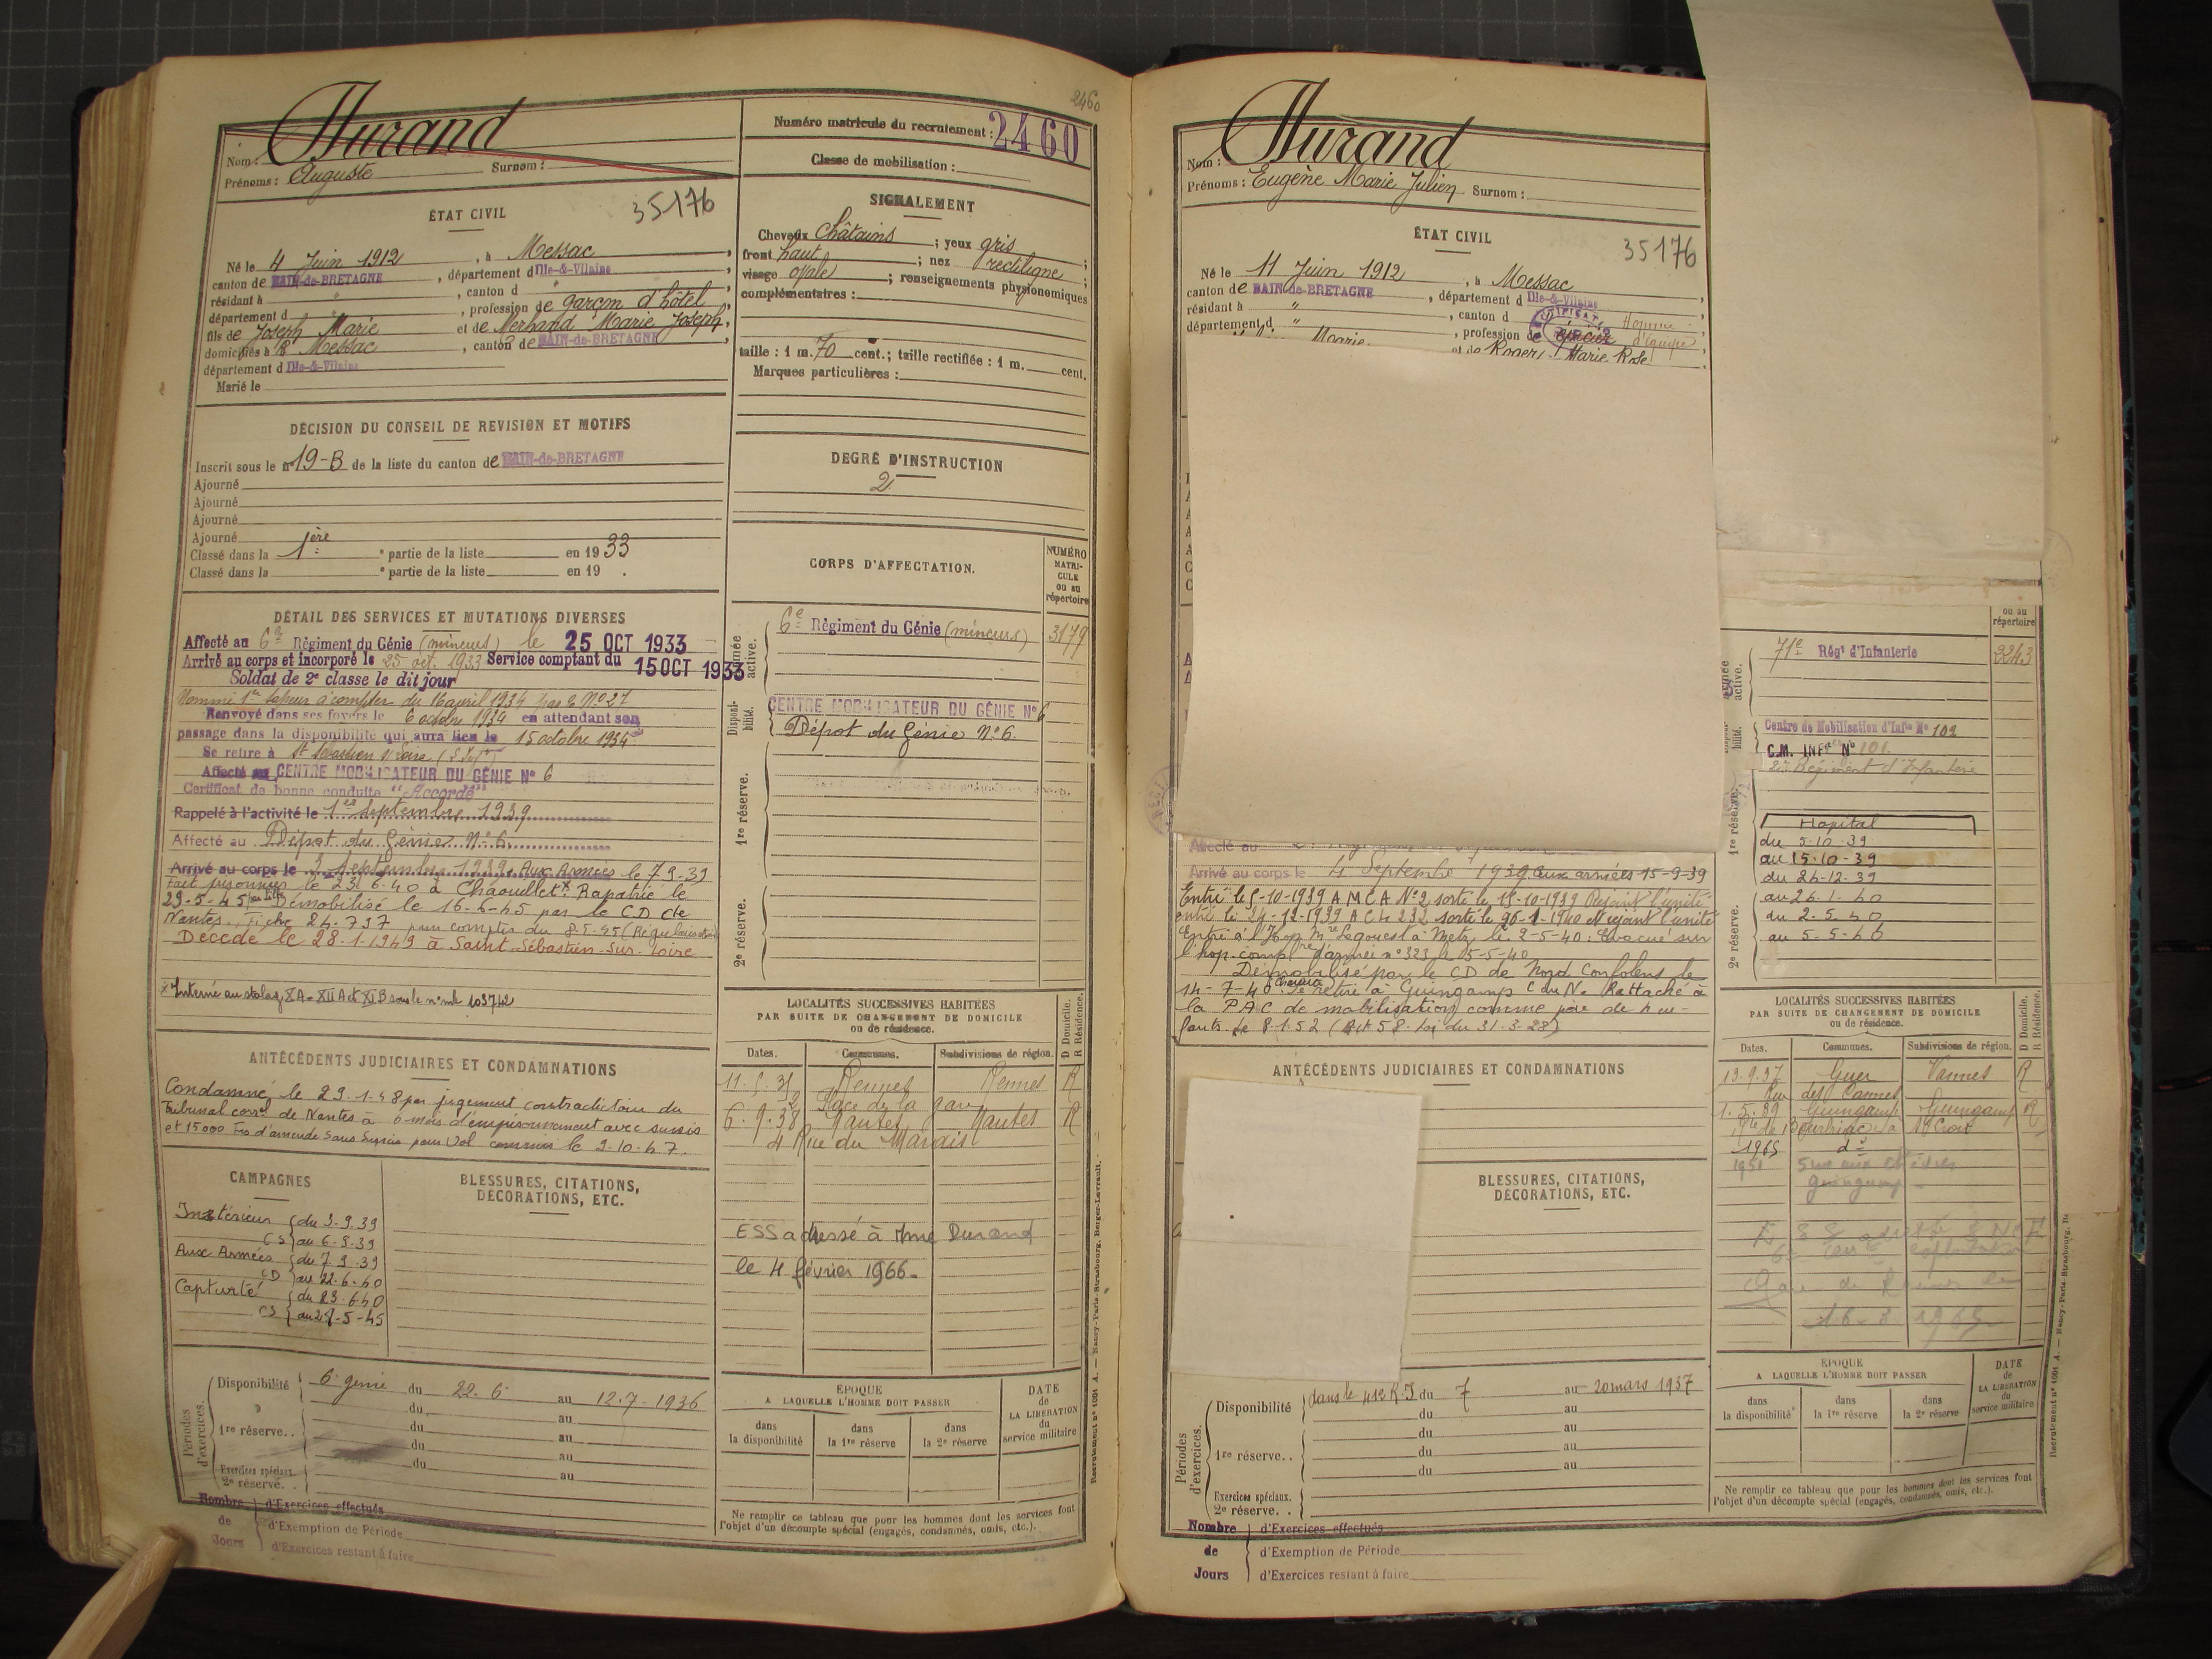 2460
Durand
Nom :
Prénoms : Auguste Surnom :
Numéro matricule du recrutement : 2460
Classe de mobilisation :
ÉTAT CIVIL
35176
Né le 4 Juin 1912, à Messac,
canton de BAIN-de-BRETAGNE, département d Ille-&-Vilaine,
résidant à " , canton d " ,
département d , profession de garçon d'hôtel,
fils de Joseph Marie et de Nerhand Marie Joseph,
domiciliés à Messac, canton de BAIN-de-BRETAGNE
département d Ille-&-Vilaine
Marié le
SIGNALEMENT
Cheveux Châtains ; yeux gris ;
front haut ; nez rectiligne ;
visage ovale ; renseignements physionomiques
complémentaires :
taille : 1 m. 70 cent.; taille rectifiée : 1 m. cent.
Marques particulières :
DÉCISION DU CONSEIL DE REVISION ET MOTIFS
Inscrit sous le n° 19-B de la liste du canton de BAIN-de-BRETAGNE
Ajourné
Ajourné
Ajourné
Ajourné
Classé dans la 1ère partie de la liste en 1933
Classé dans la e partie de la liste en 19 .
DEGRÉ D'INSTRUCTION
2
DÉTAIL DES SERVICES ET MUTATIONS DIVERSES
Affecté au 6e Régiment du Génie (mineurs) le 25 OCT 1933
Arrivé au corps et incorporé le 25 oct. 1933 Service comptant du 15 OCT 1933
Soldat de 2e classe le dit jour
Nommé 1er Sapeur à compter du 16 avril 1934 N° 27
Renvoyé dans ses foyers le 6 octobre 1934 en attendant son
passage dans la disponibilité qui aura lieu le 15 octobre 1934
Se retire à St Sébastien s/ Loire
Affecté au CENTRE MOBILISATEUR DU GÉNIE N° 6
Certificat de bonne conduite "Accordé"
Rappelé à l'activité le 1er Septembre 1939
Affecté au Dépot du Génie N° 6
Arrivé au corps le 3 Septembre 1939. Aux Armées le 7-9-39
Fait prisonnier le 23-6-40 à Rapatrié le
29-5-45 Démobilisé le 16-6-45 par le CD de
Nantes. Fiche 24.737 pour compter du 8-5-45
Décédé le 28.1.1949 à Saint-Sébastien-sur-Loire
x Interné au stalag XA-XIIA et XIB sous le n° mle 103742
CORPS D'AFFECTATION.
NUMÉRO MATRICULE ou au répertoire
Armée active.
6e Régiment du Génie (mineurs) 3179
Disponibilité.
CENTRE MOBILISATEUR DU GÉNIE N° 6
Dépot du Génie N° 6.
1re réserve.
2e réserve.
ANTÉCÉDENTS JUDICIAIRES ET CONDAMNATIONS
Condamné le 29.1.48 par jugement contradictoire du
Tribunal correl de Nantes à 6 mois d'emprisonnement avec sursis
et 15000 Frs d'amende sans sursis pour Vol commis le 2-10-47.
LOCALITÉS SUCCESSIVES HABITÉES
PAR SUITE DE CHANGEMENT DE DOMICILE
ou de résidence.
D Domicile. R Résidence.
Dates. Communes. Subdivisions de région.
Rennes Rennes R
Place de la gare
6.9.38 Nantes Nantes R
4 Rue du Marais
ESS adressé à Mme Durand
le 4 février 1966.
CAMPAGNES
Intérieur du 3.9.39
CS au 6.9.39
Aux Armées du 7.9.39
CD au 22.6.40
Captivité du 23.6.40
CS au 28-5-45
BLESSURES, CITATIONS,
DÉCORATIONS, ETC.
Périodes d'exercices.
Disponibilité 6e génie du 22.6 au 12.7.1936
du au
1re réserve.. du au
du au
du au
Exercices spéciaux.
2e réserve. .
Nombre de Jours
d'Exercices effectués
d'Exemption de Période
d'Exercices restant à faire
ÉPOQUE
A LAQUELLE L'HOMME DOIT PASSER
dans la disponibilité
dans la 1re réserve
dans la 2e réserve
DATE de LA LIBÉRATION du service militaire
Ne remplir ce tableau que pour les hommes dont les services font
l'objet d'un décompte spécial (engagés, condamnés, omis, etc.).
Recrutement N° 1004 A. — Nancy-Paris-Strasbourg, Berger-Levrault.
Durand
Nom :
Prénoms : Eugène Marie Julien Surnom :
ÉTAT CIVIL
35176
Né le 11 Juin 1912, à Messac,
canton de BAIN-de-BRETAGNE, département d Ille-&-Vilaine,
résidant à " , canton d
département d " , profession de épicier Homme d'équipe,
Marie et de Roger Marie Rose
ou au répertoire
Armée active.
71e Régt d'Infanterie 2243
Centre de Mobilisation d'Infie N° 102
C.M. INFie N° 101
Régiment d'Infanterie
1re réserve.
Hopital
du 5-10-39
au 15-10-39
du 24-12-39
au 26-1-40
du 2-5-40
au 5-5-40
2e réserve.
Affecté au
Arrivé au corps le 4 Septembre 1939. aux armées 15-9-39
Entré le 5-10-1939 A M C A N° 2 sorti le 15-10-1939 Rejoint l'unité
entré le 24-12-1939 A C H 232 sorti le 26-1-1940 et rejoint l'unité
Entré à l'Hop. Mre Legouest à Metz le 2-5-40 : Evacué sur
l'hop. compl. d'armée n° 323 le 5-5-40
Démobilisé par le CD de Nord Confolens le
14-7-40 Charente Se retire à Guingamp C du N. Rattaché à
la PAC de mobilisation comme père de 4 en-
fants le 8.1.52 (Art 58 Loi du 31-3-28)
ANTÉCÉDENTS JUDICIAIRES ET CONDAMNATIONS
BLESSURES, CITATIONS,
DÉCORATIONS, ETC.
LOCALITÉS SUCCESSIVES HABITÉES
PAR SUITE DE CHANGEMENT DE DOMICILE
ou de résidence.
D Domicile. R Résidence.
Dates. Communes. Subdivisions de région.
13.9.37 Guer Vannes R
Rue des Cannes
1.5.39 Guingamp Guingamp R
1965 do
1951
Guingamp
Gare de
16-3-1965
Périodes d'exercices.
Disponibilité dans le R.I du 7 au 20 mars 1937
du au
du au
1re réserve. . du au
du au
Exercices spéciaux.
2e réserve. .
Nombre de Jours
d'Exercices effectués
d'Exemption de Période
d'Exercices restant à faire
ÉPOQUE
A LAQUELLE L'HOMME DOIT PASSER
dans la disponibilité
dans la 1re réserve
dans la 2e réserve
DATE de LA LIBÉRATION du service militaire
Ne remplir ce tableau que pour les hommes dont les services font
l'objet d'un décompte spécial (engagés, condamnés, omis, etc.).
Recrutement N° 1004 A. — Nancy-Paris-Strasbourg, Be